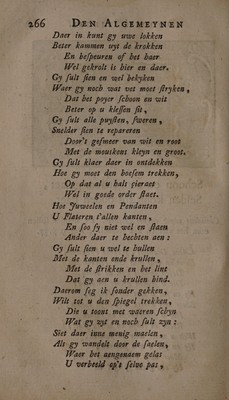 266 DEN ALGEMEYNEN
Daer in kunt gy uwe lokken
Beter kammen uyt de krokken
En bespeuren of het haer
Wel gekrolt is hier en daer.
Gy sult sien en wel bekyken
Waer gy noch wat vet moet stryken,
Dat het poyer schoon en wit
Beter op u klessen sit,
Gy sult alle puysten, sweren,
Snelder sien te repareren
Door't gesmeer van wit en root
Met de mouskens kleyn en groot.
Gy sult klaer daer in ontdekken
Hoe gy moet den boesem trekken,
Op dat al u hals cieraet
Wel in goede order staet.
Hoe Juweelen en Pendanten
U Flateren t'allen kanten,
En soo sy niet wel en staen
Ander daer te hechten aen:
Gy sult sien u wel te hullen
Met de kanten ende krullen,
Met de strikken en het lint
Dat gy aen u krullen bind.
Daerom seg ik sonder gekken,
Wilt tot u den spiegel trekken,
Die u toont met waeren schyn
Wat gy zyt en noch sult zyn:
Siet daer inne menig maelen,
Als gy wandelt door de saelen,
Waer het aengenaem gelas
U verbeeld op't selve pas,